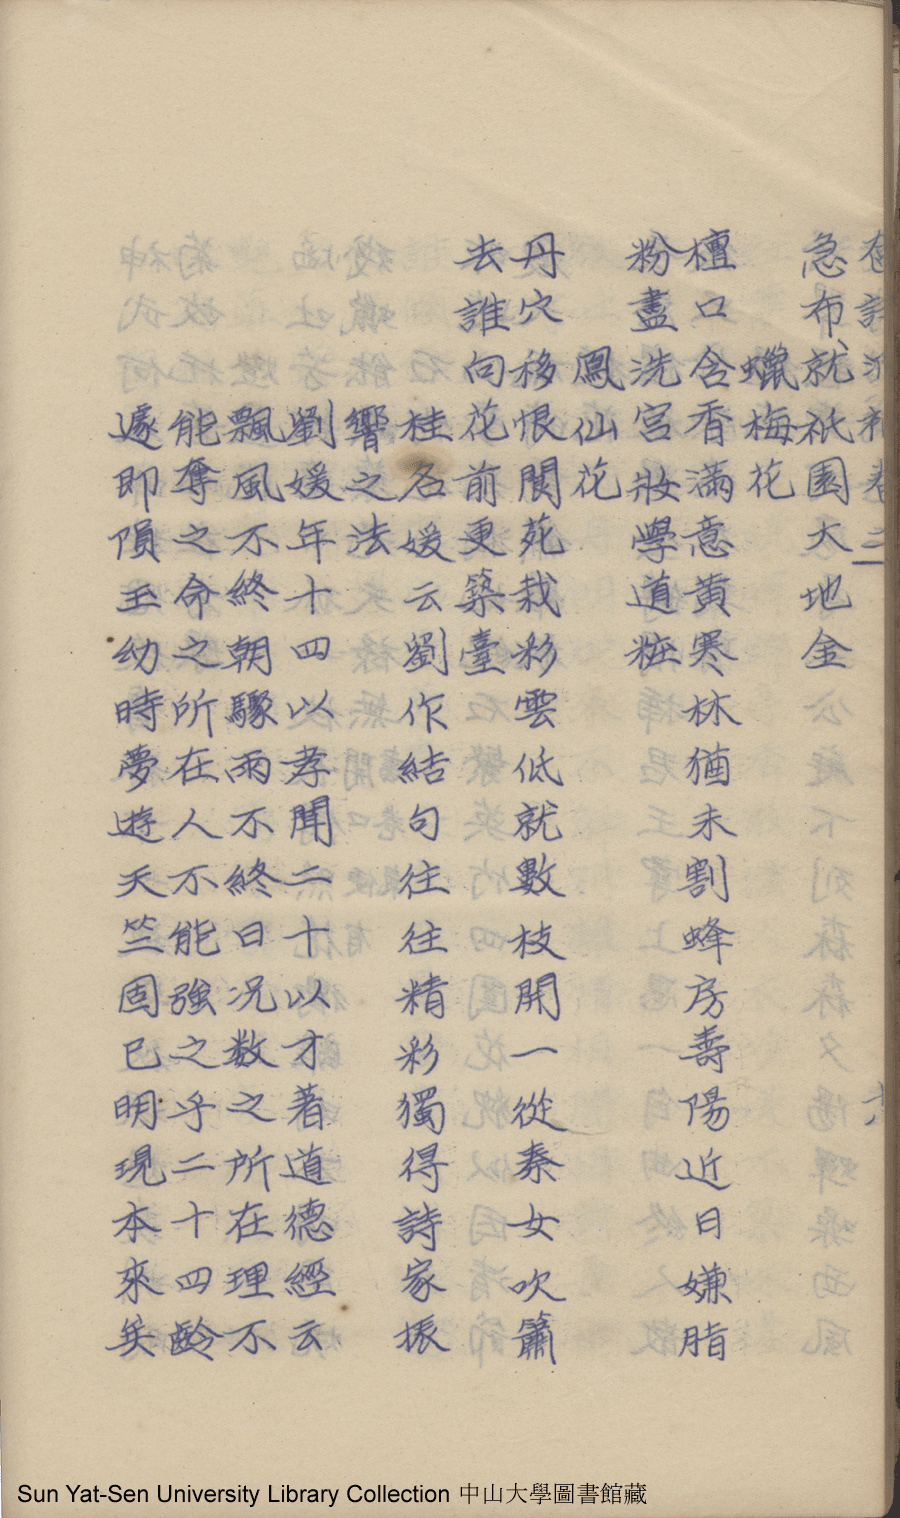 急布就祇園大地金
蠟梅花
檀口含香滿意黃寒林猶未割蜂房壽陽近日嫌脂
粉盡洗宮妝學道粧
鳳仙花
丹穴移恨閬苑栽彩雲低就數枝開一從秦女吹簫
去誰向花前更築臺
桂名媛云劉作結句往往精彩獨得詩家振
響之法
劉媛年十四以孝聞二十以才著道德經云
飄風不終朝驟雨不終日况数之所在理不
能奪之命之所在人不能強之乎二十四齡
遽即隕玉幼時夢遊天竺固已明現本來矣
Sun Yat-Sen University Library Collection 中山大學圖書館藏